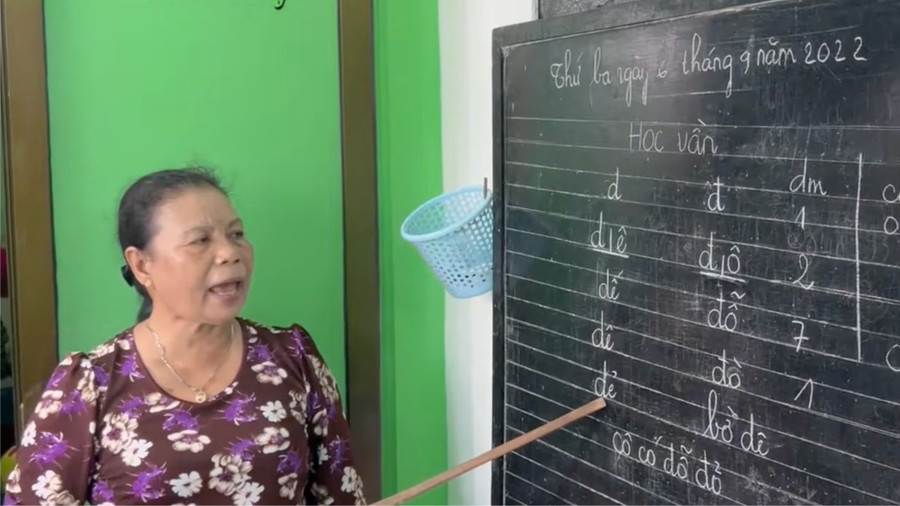 Thứ ba ngày 6 tháng 9 năm 2022
Học vần
d đ dm
1
d ê đ ô 2
dế đỗ 7
dê đồ 1
dẻ bờ đê
cô có đỗ đỏ